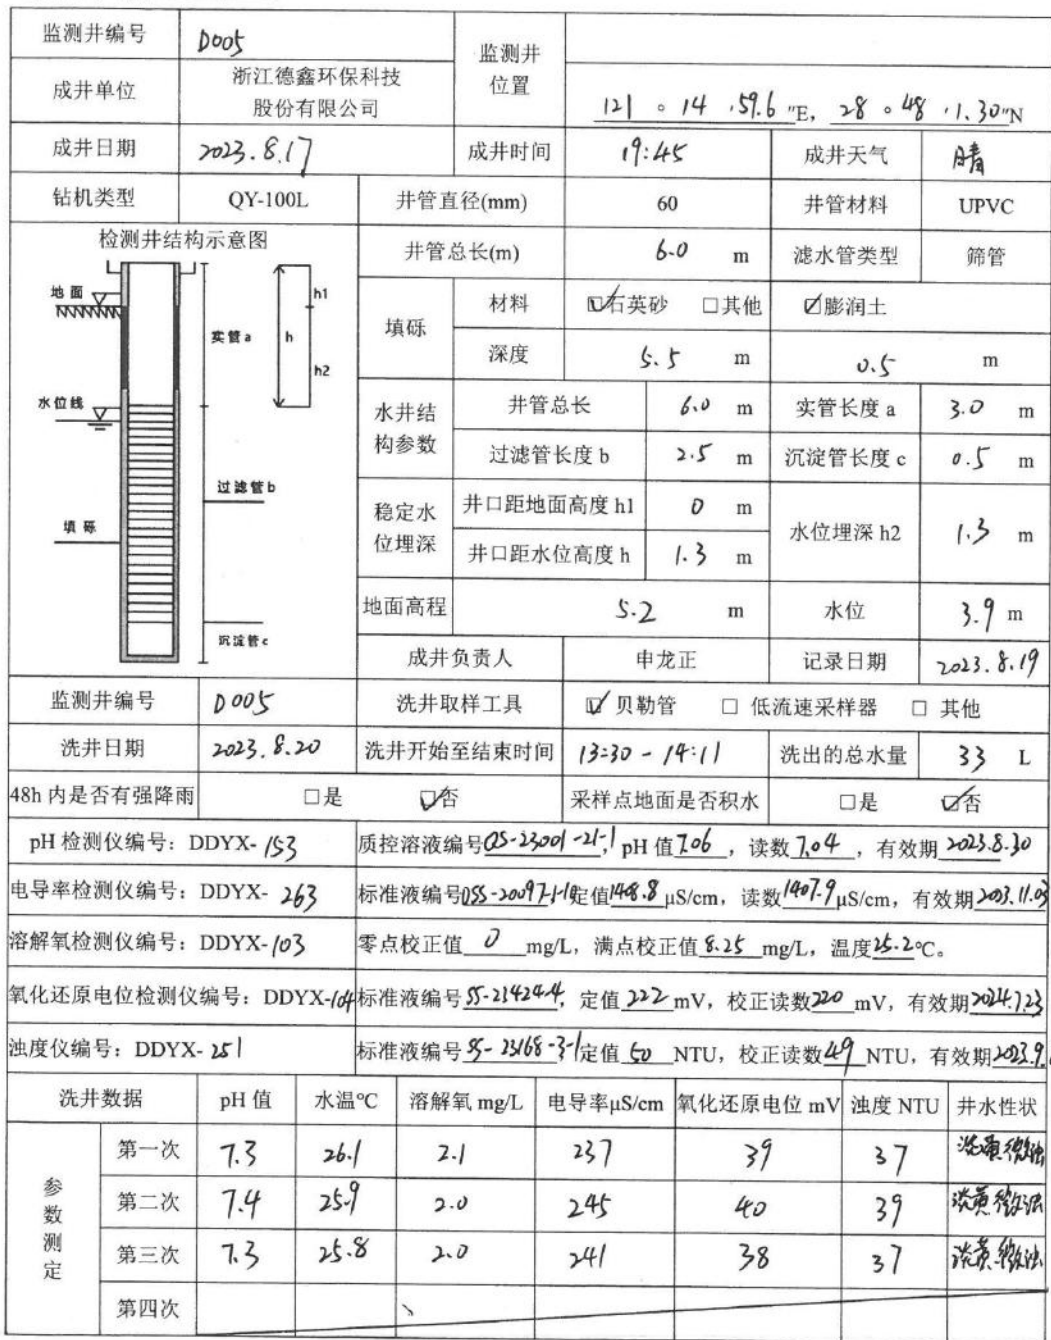 监测井编号 D005 监测井位置
成井单位 浙江德鑫环保科技股份有限公司 121 ° 14 ′ 59.6 "E, 28 ° 48 ′ 1.30"N
成井日期 2023.8.17 成井时间 19:45 成井天气 晴
钻机类型 QY-100L 井管直径(mm) 60 井管材料 UPVC
检测井结构示意图
地面
水位线
填砾
实管a
过滤管b
沉淀管c
h
h1
h2
井管总长(m) 6.0 m 滤水管类型 筛管
填砾 材料 ☑石英砂 □其他 ☑膨润土
深度 5.5 m 0.5 m
水井结构参数 井管总长 6.0 m 实管长度 a 3.0 m
过滤管长度 b 2.5 m 沉淀管长度 c 0.5 m
稳定水位埋深 井口距地面高度 h1 0 m 水位埋深 h2 1.3 m
井口距水位高度 h 1.3 m
地面高程 5.2 m 水位 3.9 m
成井负责人 申龙正 记录日期 2023.8.19
监测井编号 D005 洗井取样工具 ☑ 贝勒管 □ 低流速采样器 □ 其他
洗井日期 2023.8.20 洗井开始至结束时间 13:30 - 14:11 洗出的总水量 33 L
48h 内是否有强降雨 □是 ☑否 采样点地面是否积水 □是 ☑否
pH 检测仪编号：DDYX-153 质控溶液编号QS-23001-21-1 pH 值7.06，读数7.04，有效期2023.8.30
电导率检测仪编号：DDYX-263 标准液编号 定值1408.8 μS/cm，读数1407.9μS/cm，有效期
溶解氧检测仪编号：DDYX-103 零点校正值 0 mg/L，满点校正值 8.25 mg/L，温度25.2℃。
氧化还原电位检测仪编号：DDYX-104 标准液编号 定值 222 mV，校正读数220 mV，有效期2024.7.23
浊度仪编号：DDYX-251 标准液编号 定值 50 NTU，校正读数49 NTU，有效期2023.9.
洗井数据 pH 值 水温℃ 溶解氧 mg/L 电导率μS/cm 氧化还原电位 mV 浊度 NTU 井水性状
参数测定
第一次 7.3 26.1 2.1 237 39 37 淡黄微浊
第二次 7.4 25.9 2.0 245 40 39 淡黄微浊
第三次 7.3 25.8 2.0 241 38 37 淡黄微浊
第四次